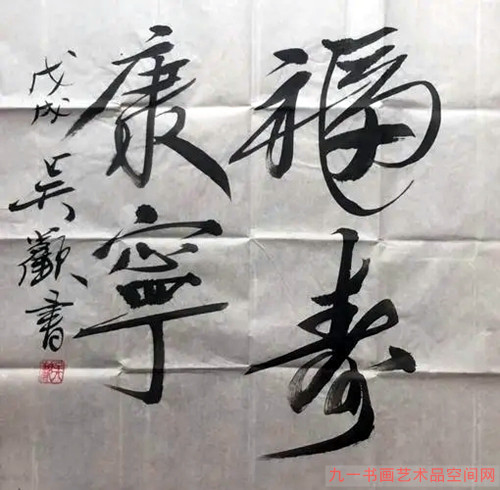 福寿
康寧
戊戌
吴顴書
九一书画艺术品空间网